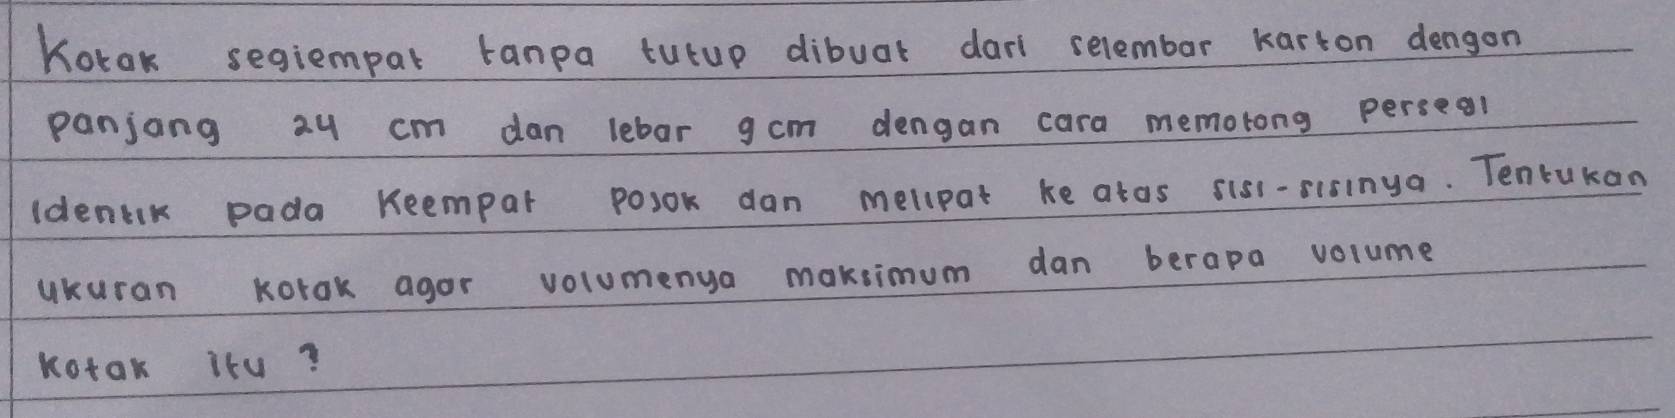 Kotak segiempat tanpa tutup dibuat dari selembar karton dengan
panjang 24 cm dan lebar 9 cm dengan cara memotong persegi
identik pada keempat pojok dan melipat ke atas sisi-sisinya. Tentukan
ukuran kotak agar volumenya maksimum dan berapa volume
kotak itu?